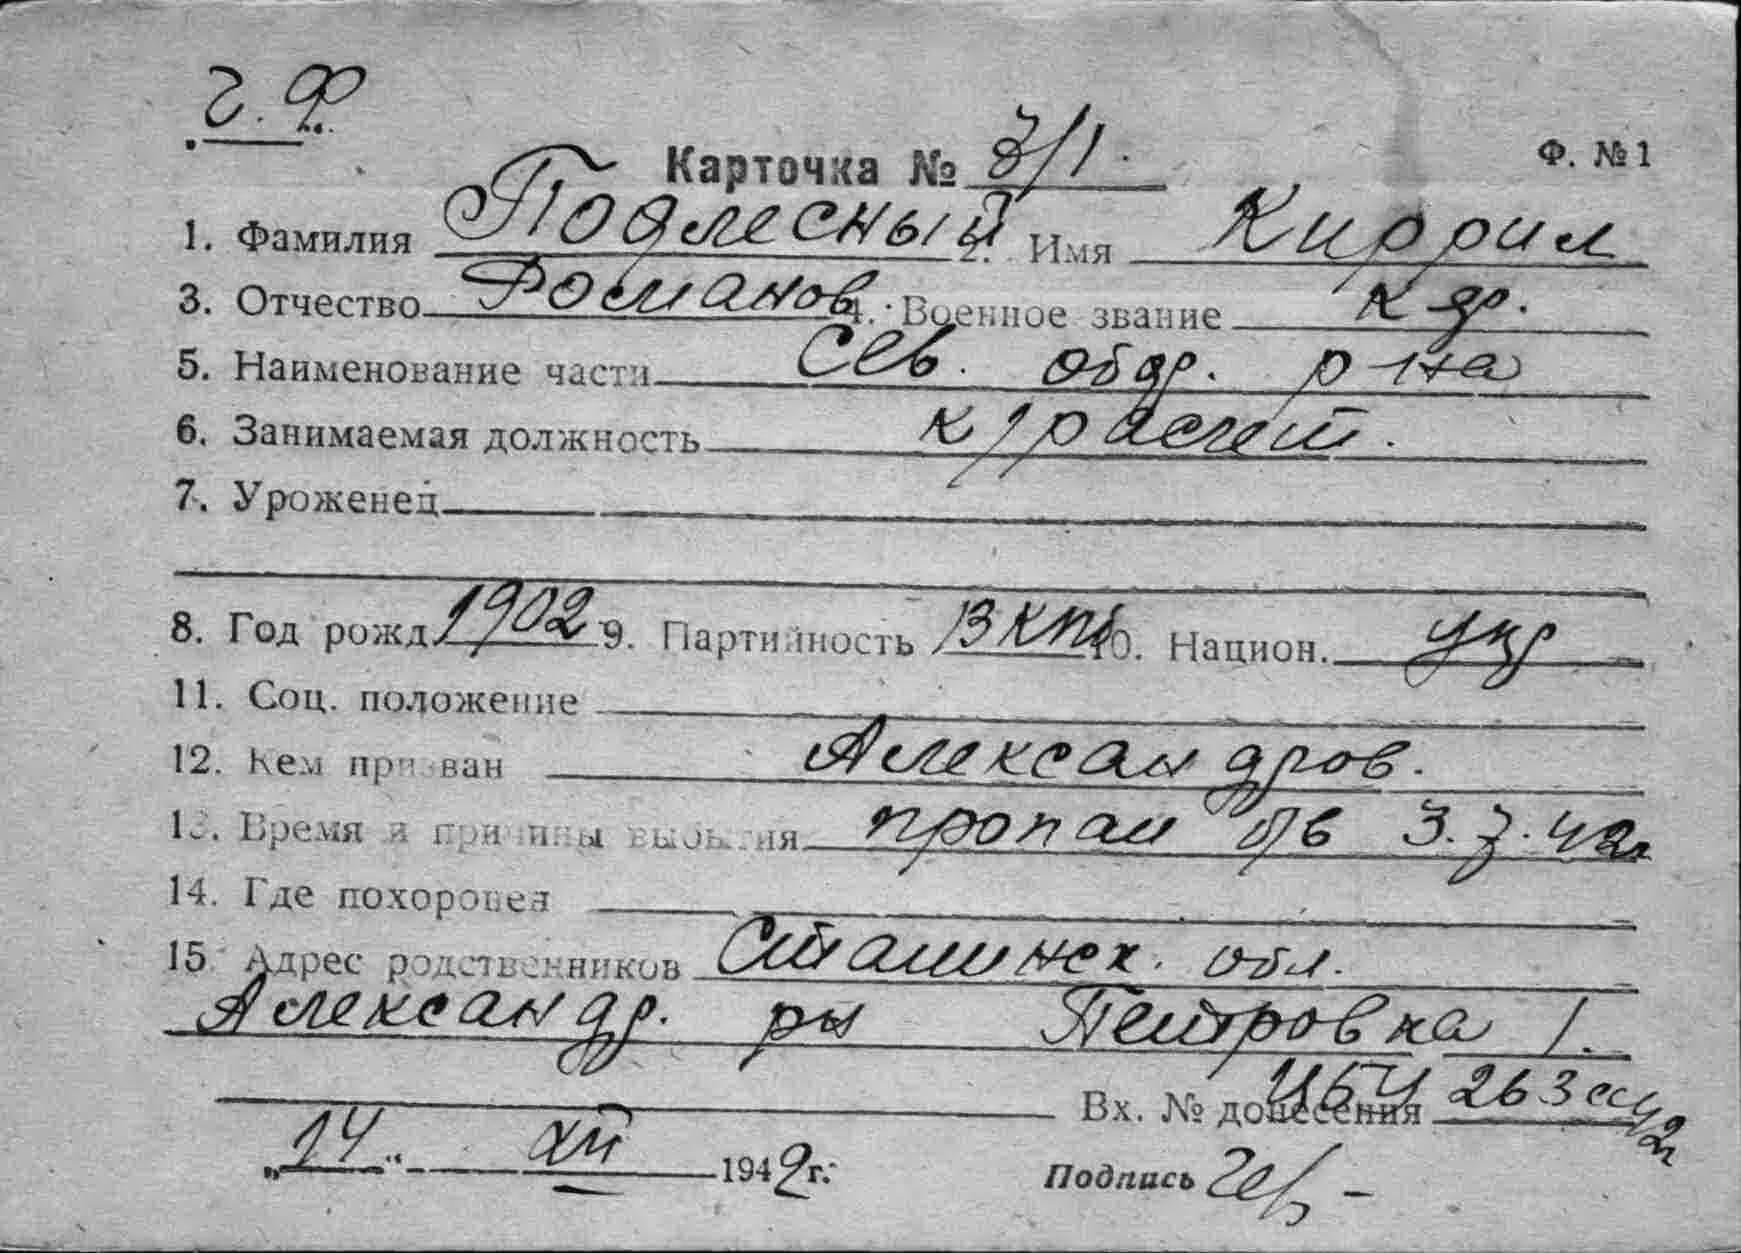 Ч.Ф.
Карточка № 3/1.
Ф. № 1
1. Фамилия Подлесный 2. Имя Киррил
3. Отчество Романов 4. Военное звание к др.
5. Наименование части Сев. обор. р-на
6. Занимаемая должность к/расчет.
7. Уроженец
8. Год рожд 1902 9. Партийность ВКПб 10. Национ. укр
11. Соц. положение
12. Кем призван Александров.
13. Время и причины выбытия пропал б/в 3.7.42г
14. Где похоронен
15. Адрес родственников Сталинск. обл.
Александр. рн Петровка 1.
Вх. № донесения 263сс 42г
„14“ XII 1942 г.
Подпись